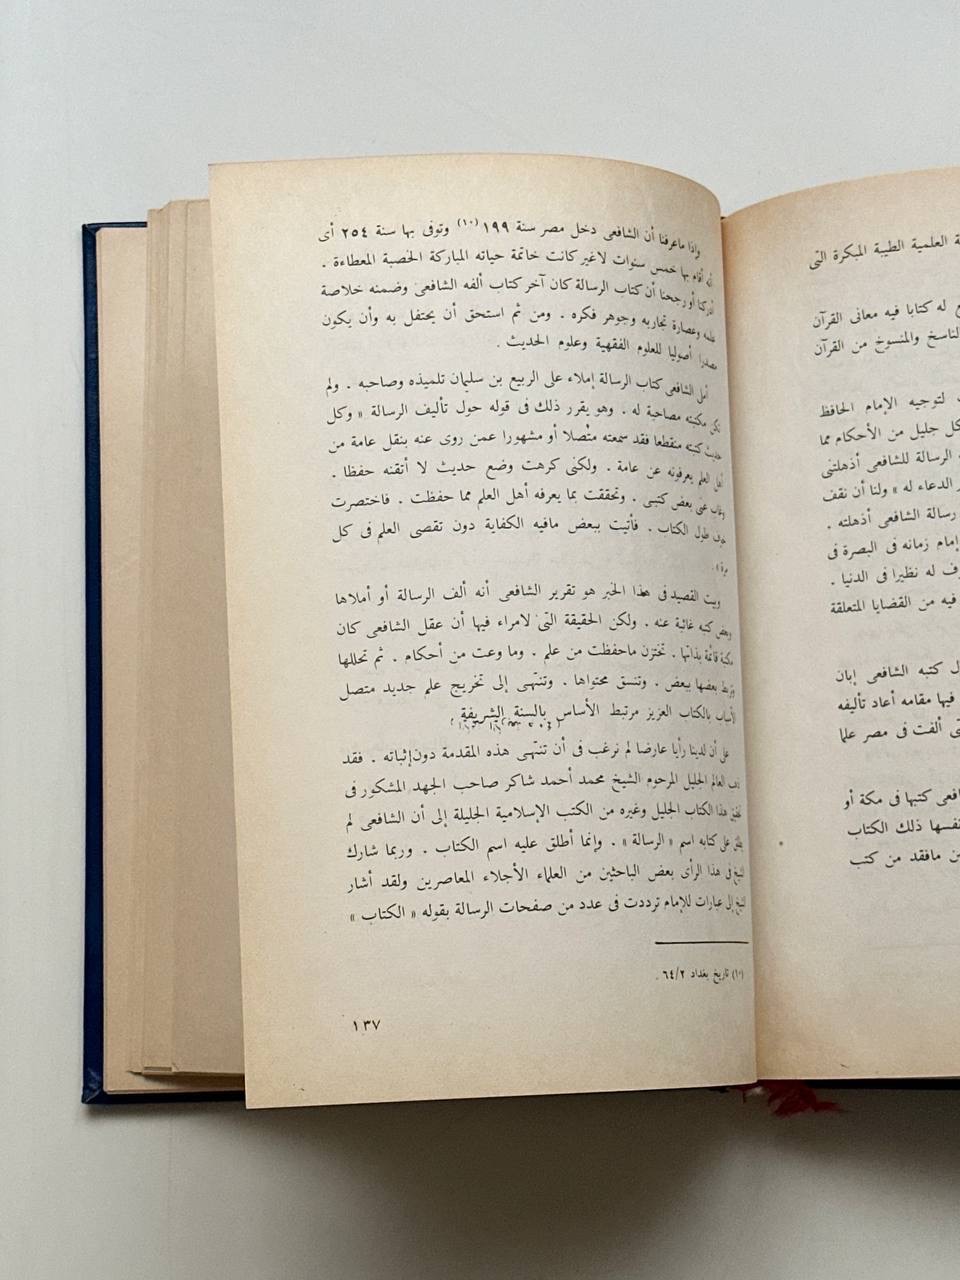 وإذا ماعرفنا أن الشافعى دخل مصر سنة ١٩٩ (١٠) وتوفى بها سنة ٢٥٤ أى
أنه أقام بها خمس سنوات لاغير كانت خاتمة حياته المباركة الخصبة المعطاءة .
أدركنا أو رجحنا أن كتاب الرسالة كان آخر كتاب ألفه الشافعى وضمنه خلاصة
علمه وعصارة تجاربه وجوهر فكره . ومن ثم استحق أن يحتفل به وأن يكون
مصدرا أصوليا للعلوم الفقهية وعلوم الحديث .
أمل الشافعى كتاب الرسالة إملاء على الربيع بن سليمان تلميذه وصاحبه . ولم
تكن مكتبته مصاحبة له . وهو يقرر ذلك فى قوله حول تأليف الرسالة « وكل
حديث كتبته منقطعا فقد سمعته متصلا أو مشهورا عمن روى عنه بنقل عامة من
أهل العلم يعرفونه عن عامة . ولكنى كرهت وضع حديث لا أتقنه حفظا .
وغاب عنى بعض كتبى . وتحققت بما يعرفه أهل العلم مما حفظت . فاختصرت
خوف طول الكتاب . فأتيت ببعض مافيه الكفاية دون تقصى العلم فى كل
وبيت القصيد فى هذا الخبر هو تقرير الشافعى أنه ألف الرسالة أو أملاها
وبعض كتبه غائبة عنه . ولكن الحقيقة التى لامراء فيها أن عقل الشافعى كان
مكتبة قائمة بذاتها . تختزن ماحفظت من علم . وما وعت من أحكام . ثم تحللها
وتربط بعضها ببعض . وتنسق محتواها . وتنتهى إلى تخريج علم جديد متصل
الأسباب بالكتاب العزيز مرتبط الأساس بالسنة الشريفة .
على أن لدينا رأيا عارضا لم نرغب فى أن تنتهى هذه المقدمة دون إثباته . فقد
ذهب العالم الجليل المرحوم الشيخ محمد أحمد شاكر صاحب الجهد المشكور فى
تحقيق هذا الكتاب الجليل وغيره من الكتب الإسلامية الجليلة إلى أن الشافعى لم
يطلق على كتابه اسم « الرسالة » . وإنما أطلق عليه اسم الكتاب . وربما شارك
الشيخ فى هذا الرأى بعض الباحثين من العلماء الأجلاء المعاصرين ولقد أشار
الشيخ إلى عبارات للإمام ترددت فى عدد من صفحات الرسالة بقوله « الكتاب »
(١٠) تاريخ بغداد ٦٤/٢ .
١٣٧
العلمية الطيبة المبكرة التى
له كتابا فيه معانى القرآن
والمنسوخ من القرآن
لتوجيه الإمام الحافظ
جليل من الأحكام مما
الرسالة للشافعى أذهلتنى
الدعاء له » ولنا أن نقف
رسالة الشافعى أذهلته .
إمام زمانه فى البصرة فى
له نظيرا فى الدنيا .
فيه من القضايا المتعلقة
كتبه الشافعى إبان
فيها مقامه أعاد تأليفه
ألفت فى مصر علما
كتبها فى مكة أو
ذلك الكتاب
مافقد من كتب